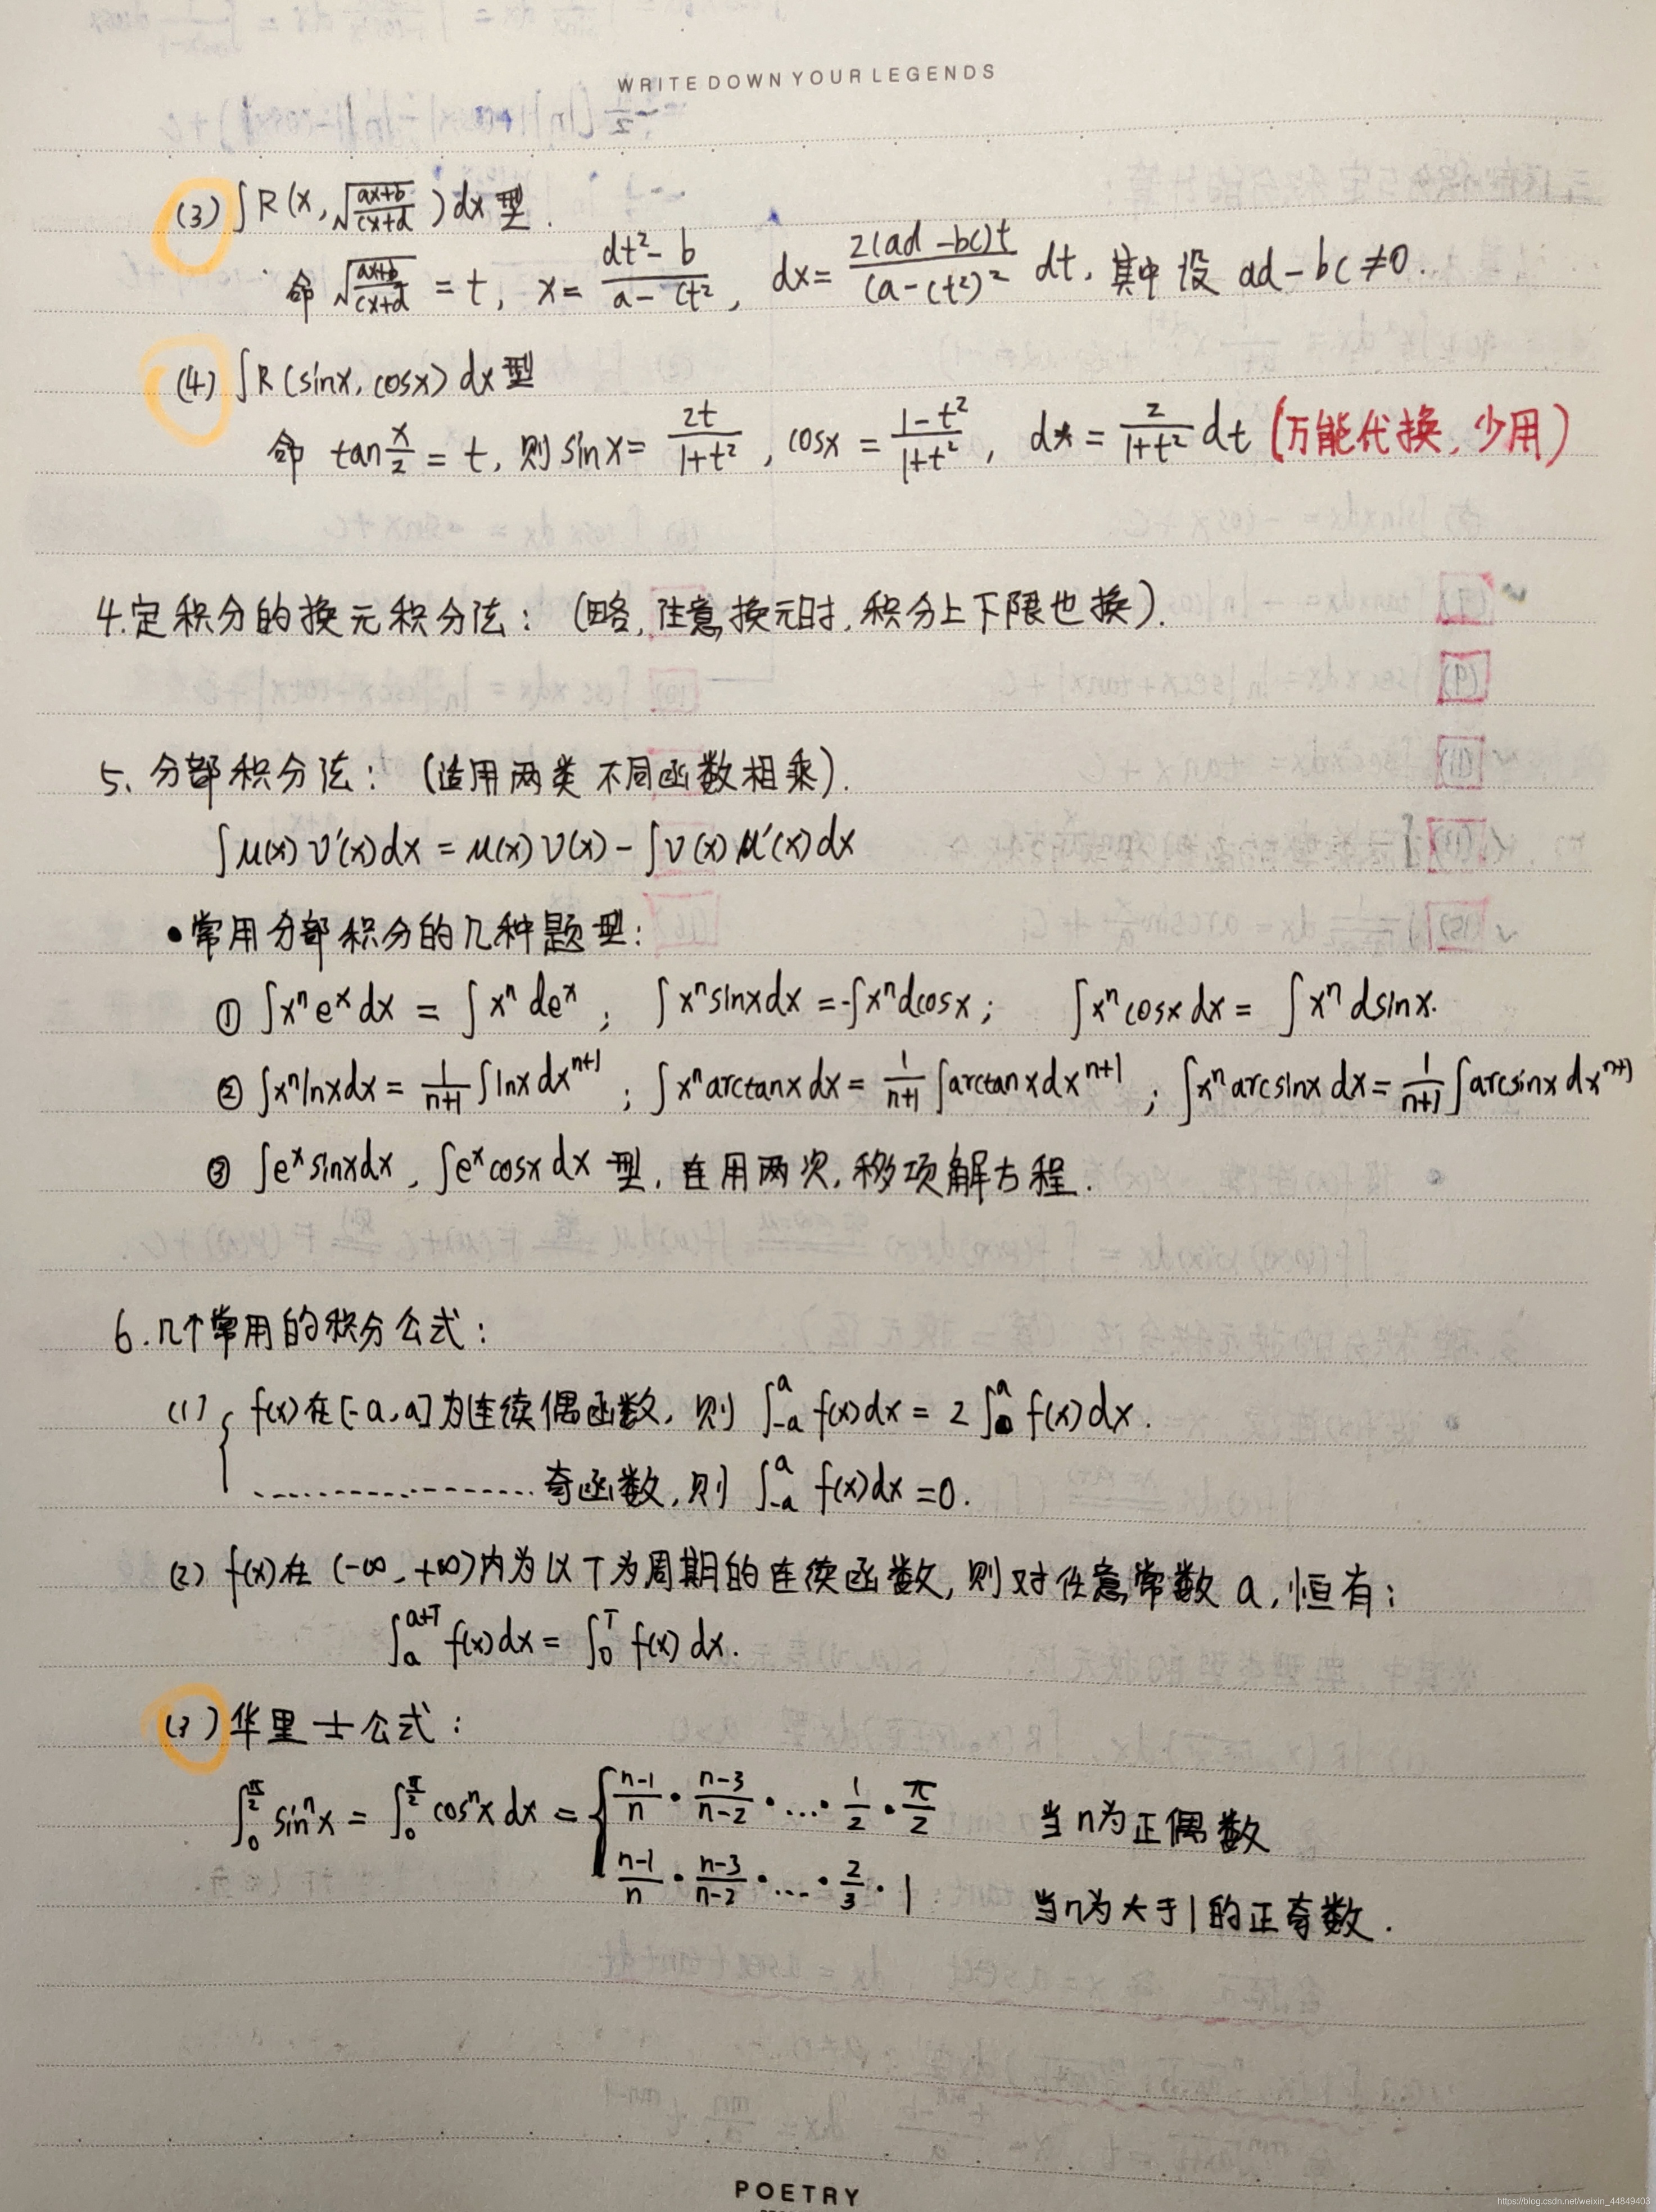 WRITE DOWN YOUR LEGENDS
(3) ∫R(x, √((ax+b)/(cx+d)))dx型.
命 √((ax+b)/(cx+d)) = t, x = (dt²-b)/(a-ct²), dx = 2(ad-bc)t/(a-ct²)² dt, 其中设 ad-bc≠0.
(4) ∫R(sinx, cosx)dx型
命 tan x/2 = t, 则 sinx = 2t/(1+t²), cosx = (1-t²)/(1+t²), dx = 2/(1+t²) dt (万能代换, 少用)
4.定积分的换元积分法: (略, 注意换元时, 积分上下限也换).
5. 分部积分法: (适用两类不同函数相乘).
∫u(x)v'(x)dx = u(x)v(x) - ∫v(x)u'(x)dx
•常用分部积分的几种题型:
① ∫xⁿeˣdx = ∫xⁿdeˣ; ∫xⁿsinxdx = -∫xⁿdcosx; ∫xⁿcosxdx = ∫xⁿdsinx.
② ∫xⁿlnxdx = 1/(n+1) ∫lnxdxⁿ⁺¹; ∫xⁿarctanxdx = 1/(n+1) ∫arctanxdxⁿ⁺¹; ∫xⁿarcsinxdx = 1/(n+1) ∫arcsinxdxⁿ⁺¹
③ ∫eˣsinxdx, ∫eˣcosxdx 型, 连用两次, 移项解方程.
6.几个常用的积分公式:
(1) { f(x)在[-a, a]为连续偶函数, 则 ∫₋ₐᵃ f(x)dx = 2∫₀ᵃ f(x)dx.
................奇函数, 则 ∫₋ₐᵃ f(x)dx = 0.
(2) f(x)在 (-∞, +∞)内为以T为周期的连续函数, 则对任意常数 a, 恒有:
∫ₐᵃ⁺ᵀ f(x)dx = ∫₀ᵀ f(x)dx.
(3) 华里士公式:
∫₀^(π/2) sinⁿx = ∫₀^(π/2) cosⁿx dx = { (n-1)/n · (n-3)/(n-2) · ... · 1/2 · π/2 当n为正偶数
(n-1)/n · (n-3)/(n-2) · ... · 2/3 · 1 当n为大于1的正奇数.
POETRY
https://blog.csdn.net/weixin_44849403